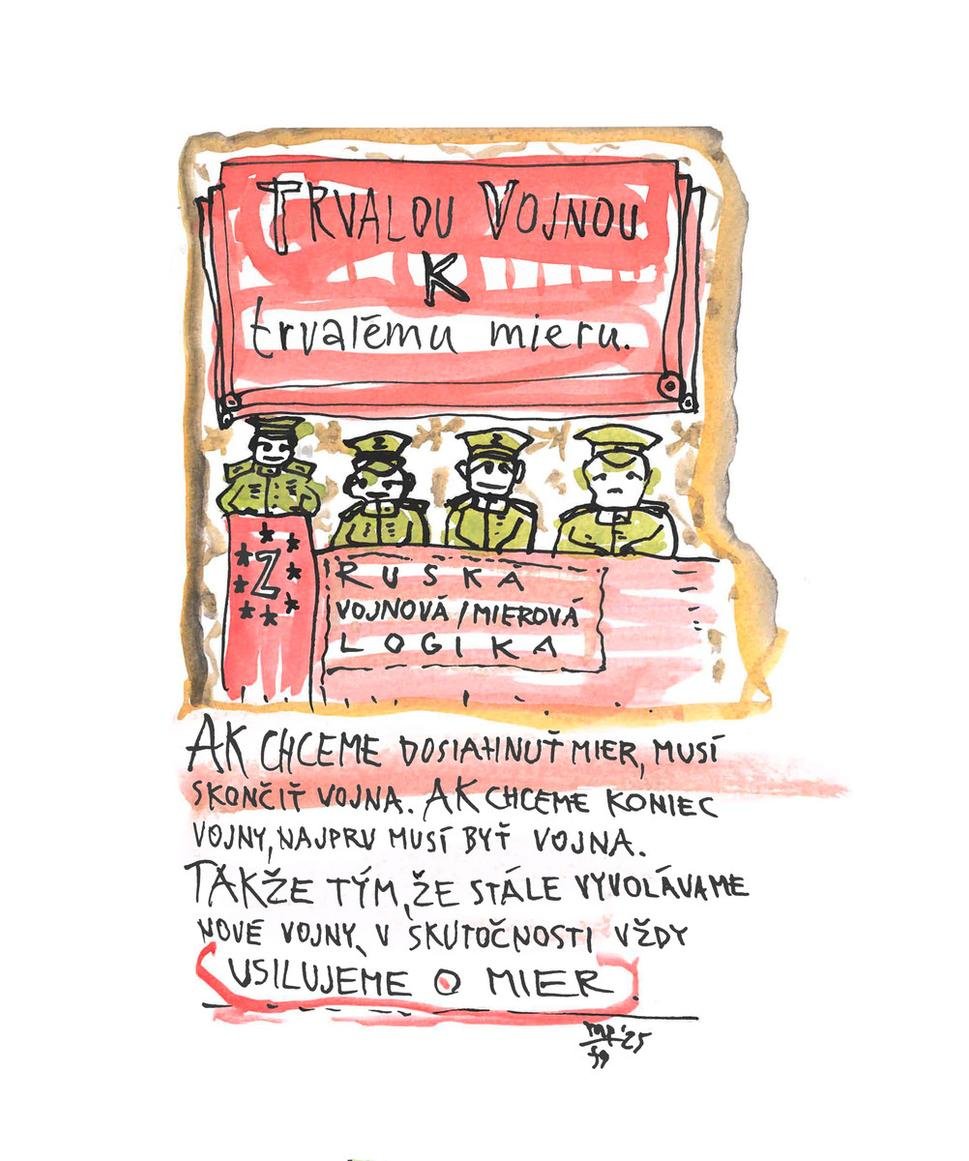 TRVALOU VOJNOU
K
trvalému mieru.
Z
RUSKÁ
VOJNOVÁ/MIEROVÁ
LOGIKA
AK CHCEME DOSIAHNUŤ MIER, MUSÍ
SKONČIŤ VOJNA. AK CHCEME KONIEC
VOJNY, NAJPRV MUSÍ BYŤ VOJNA.
TAKŽE TÝM, ŽE STÁLE VYVOLÁVAME
NOVÉ VOJNY, V SKUTOČNOSTI VŽDY
USILUJEME O MIER
'25